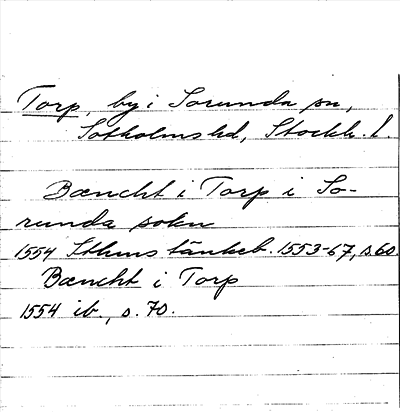 Torp, by i Sorunda sn,
Sotholms hd, Stockh. l.
Bencht i Torp i So-
runda sokn
1554 Sthms tänkeb. 1553-67, s. 60.
Bencht i Torp
1554 ib., s. 70.